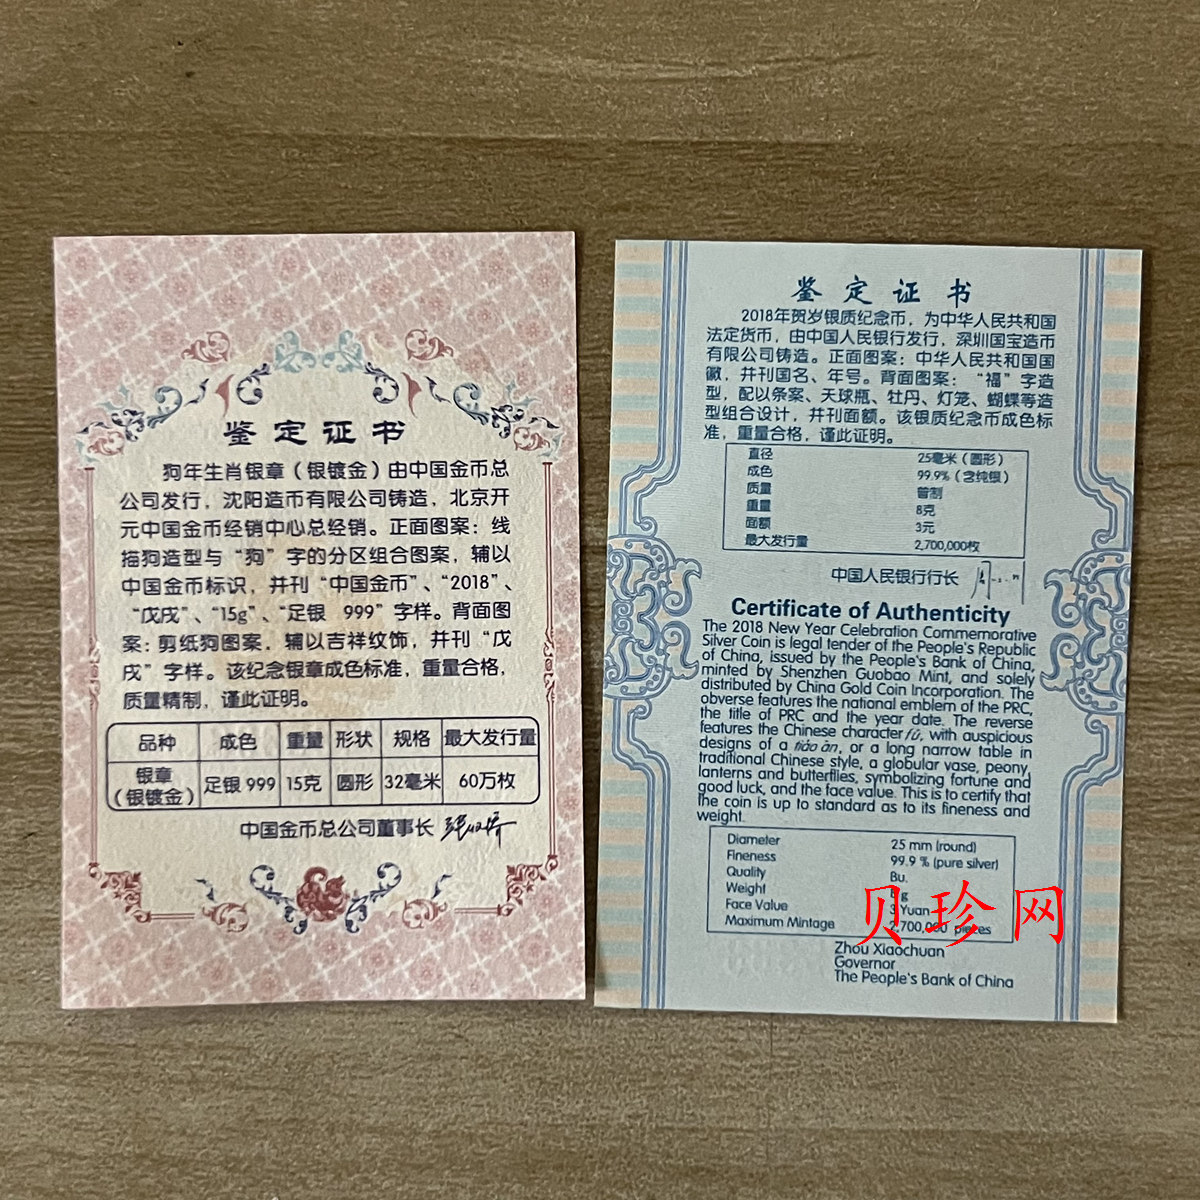 鉴定证书
狗年生肖银章（银镀金）由中国金币总
公司发行，沈阳造币有限公司铸造，北京开
元中国金币经销中心总经销。正面图案：线
描狗造型与“狗”字的分区组合图案，辅以
中国金币标识，并刊“中国金币”、“2018”、
“戊戌”、“15g”、“足银 999”字样。背面图
案：剪纸狗图案，辅以吉祥纹饰，并刊“戊
戌”字样。该纪念银章成色标准，重量合格，
质量精制，谨此证明。
品种 成色 重量 形状 规格 最大发行量
银章
（银镀金） 足银 999 15克 圆形 32毫米 60万枚
中国金币总公司董事长
鉴定证书
2018年贺岁银质纪念币，为中华人民共和国
法定货币，由中国人民银行发行，深圳国宝造币
有限公司铸造。正面图案：中华人民共和国国
徽，并刊国名、年号。背面图案：“福”字造
型，配以条案、天球瓶、牡丹、灯笼、蝴蝶等造
型组合设计，并刊面额。该银质纪念币成色标
准，重量合格，谨此证明。
直径 25毫米（圆形）
成色 99.9%（含纯银）
质量 普制
重量 8克
面额 3元
最大发行量 2,700,000枚
中国人民银行行长
Certificate of Authenticity
The 2018 New Year Celebration Commemorative
Silver Coin is legal tender of the People's Republic
of China, issued by the People's Bank of China,
minted by Shenzhen Guobao Mint, and solely
distributed by China Gold Coin Incorporation. The
obverse features the national emblem of the PRC,
the title of PRC and the year date. The reverse
features the Chinese character fú, with auspicious
designs of a tiáo àn, or a long narrow table in
traditional Chinese style, a globular vase, peony,
lanterns and butterflies, symbolizing fortune and
good luck, and the face value. This is to certify that
the coin is up to standard as to its fineness and
weight.
Diameter 25 mm (round)
Fineness 99.9 % (pure silver)
Quality Bu.
Weight g
Face Value 3 Yuan
Maximum Mintage 2,700,000 pieces
贝珍网
Zhou Xiaochuan
Governor
The People's Bank of China